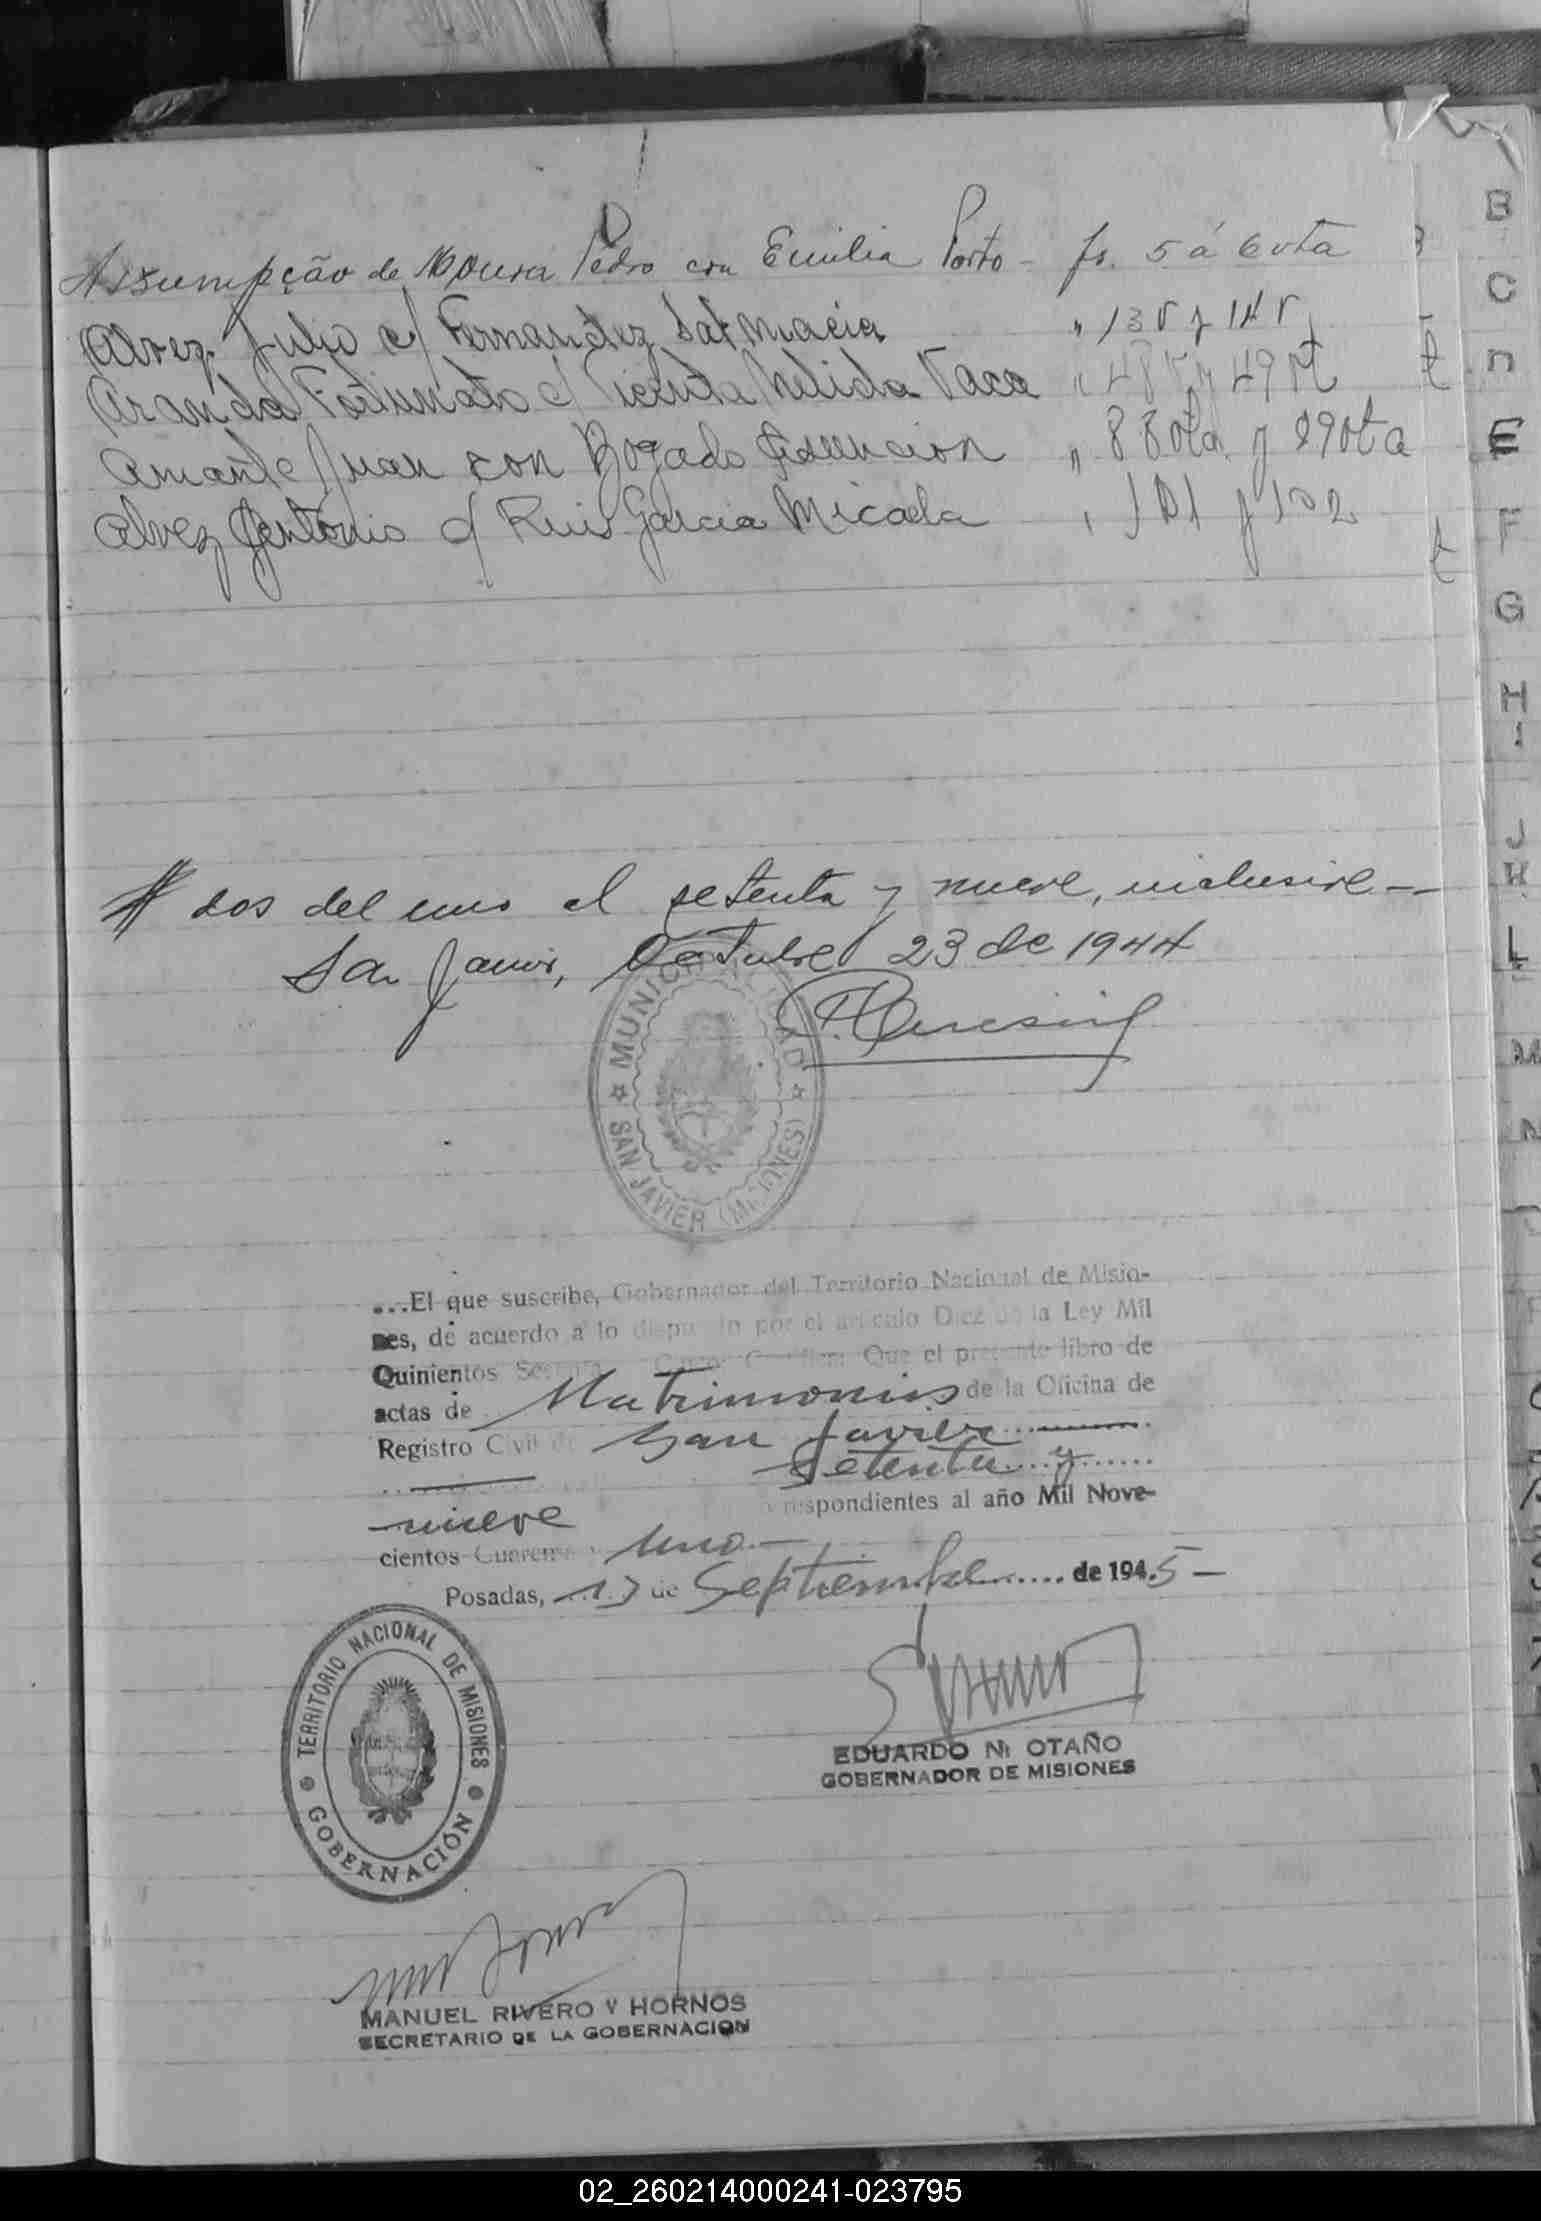 Assumpção de Moura Pedro con Emilia Porto - fs. 5 á 6 vta
Alvez Julio c/ Fernandez Salmacia " 13 v y 14 v
Aranda Fortunato c/ Vicenta Nelida Vaca " 48 v y 49 vt
Amante Juan con Bogado Asuncion " 88 vta y 89 vta
Alvez Antonio c/ Ruis Garcia Micaela " 101 y 102
dos del uno al setenta y nueve, inclusive -
San Javier, Octubre 23 de 1944
MUNICIPALIDAD
SAN JAVIER (MISIONES)
...El que suscribe, Gobernador del Territorio Nacional de Misio-
nes, de acuerdo a lo dispuesto por el artículo Diez de la Ley Mil
Quinientos Que el presente libro de
actas de Matrimonios de la Oficina de
Registro Civil de San Javier
setenta y
nueve respondientes al año Mil Nove-
cientos Cuarenta y uno -
Posadas, 17 de Septiembre de 1945 -
TERRITORIO NACIONAL DE MISIONES
GOBERNACIÓN
EDUARDO N. OTAÑO
GOBERNADOR DE MISIONES
MANUEL RIVERO Y HORNOS
SECRETARIO DE LA GOBERNACION
B
C
D
E
F
G
H
I
J
K
L
M
N
02_260214000241-023795